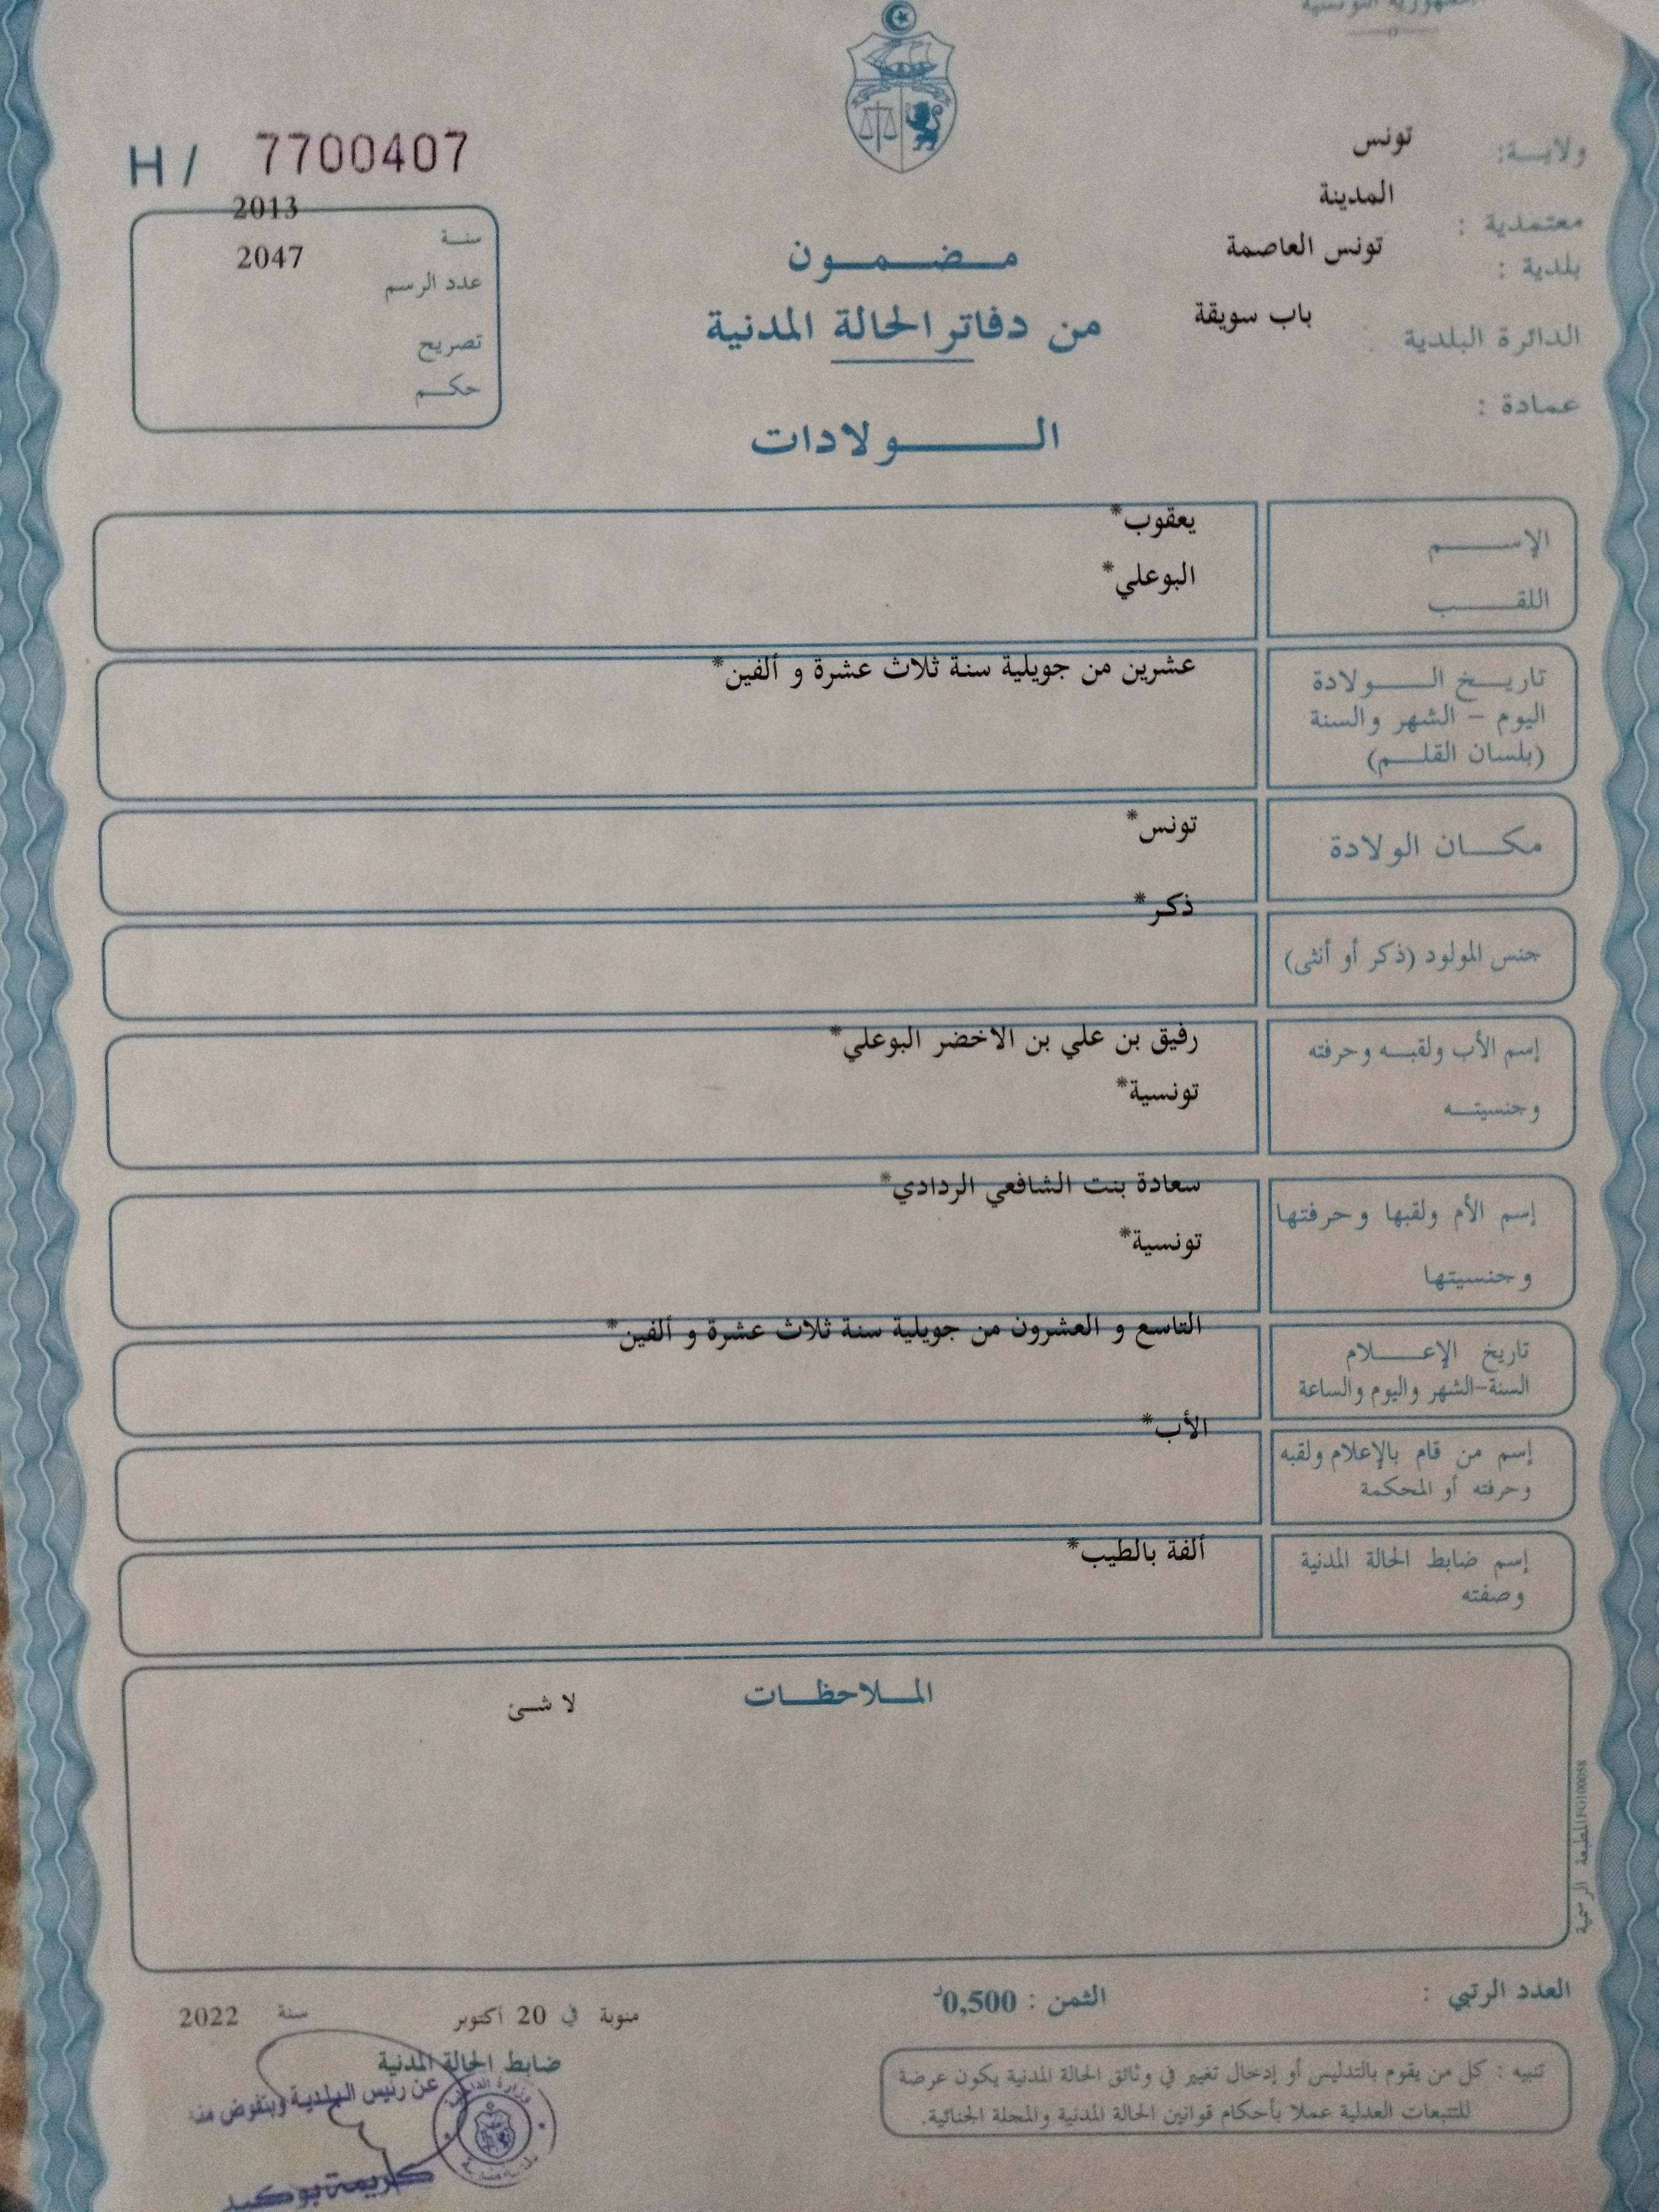 الجمهورية التونسية
H / 7700407
2013
سنة
2047
عدد الرسم
تصريح
حكم
ولاية: تونس
معتمدية : المدينة
بلدية : تونس العاصمة
الدائرة البلدية باب سويقة
عمادة :
مضمون
من دفاتر الحالة المدنية
الولادات
الإسم يعقوب*
اللقب البوعلي*
تاريخ الولادة عشرين من جويلية سنة ثلاث عشرة و ألفين*
اليوم - الشهر والسنة
(بلسان القلم)
مكان الولادة تونس*
جنس المولود (ذكر أو أنثى) ذكر*
إسم الأب ولقبه وحرفته رفيق بن علي بن الاخضر البوعلي*
وجنسيته تونسية*
إسم الأم ولقبها وحرفتها سعادة بنت الشافعي الردادي*
وجنسيتها تونسية*
تاريخ الإعلام التاسع و العشرون من جويلية سنة ثلاث عشرة و ألفين*
السنة-الشهر واليوم والساعة
إسم من قام بالإعلام ولقبه الأب*
وحرفته أو المحكمة
إسم ضابط الحالة المدنية ألفة بالطيب*
وصفته
الملاحظات
لا شئ
المطبعة الرسمية
العدد الرتبي :
الثمن : 0,500د
منوبة في 20 أكتوبر سنة 2022
ضابط الحالة المدنية
عن رئيس البلدية وبتفويض منه
تنبيه : كل من يقوم بالتدليس أو إدخال تغيير في وثائق الحالة المدنية يكون عرضة
للتتبعات العدلية عملا بأحكام قوانين الحالة المدنية والمجلة الجنائية.